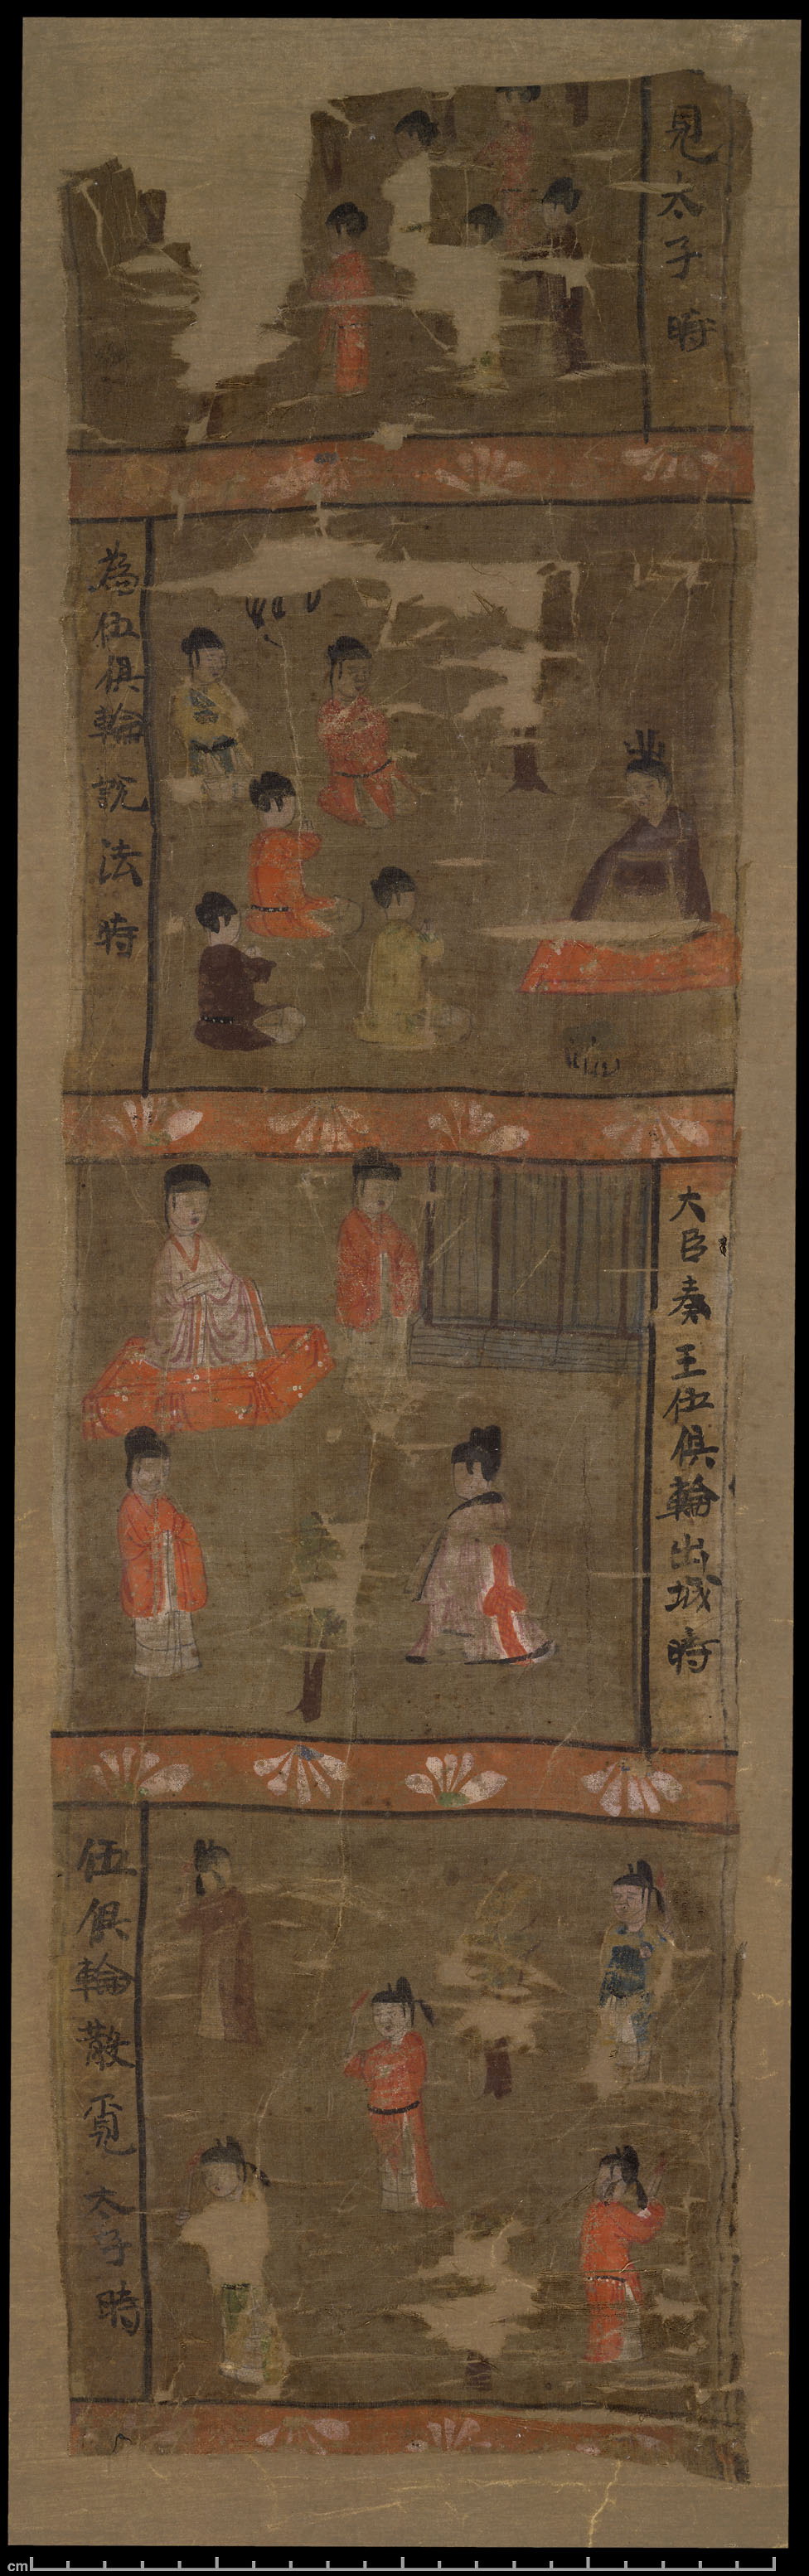 見太子時
為伍俱輪説法時
大臣奏王伍俱輪出城時
伍俱輪散覓太子時
cm